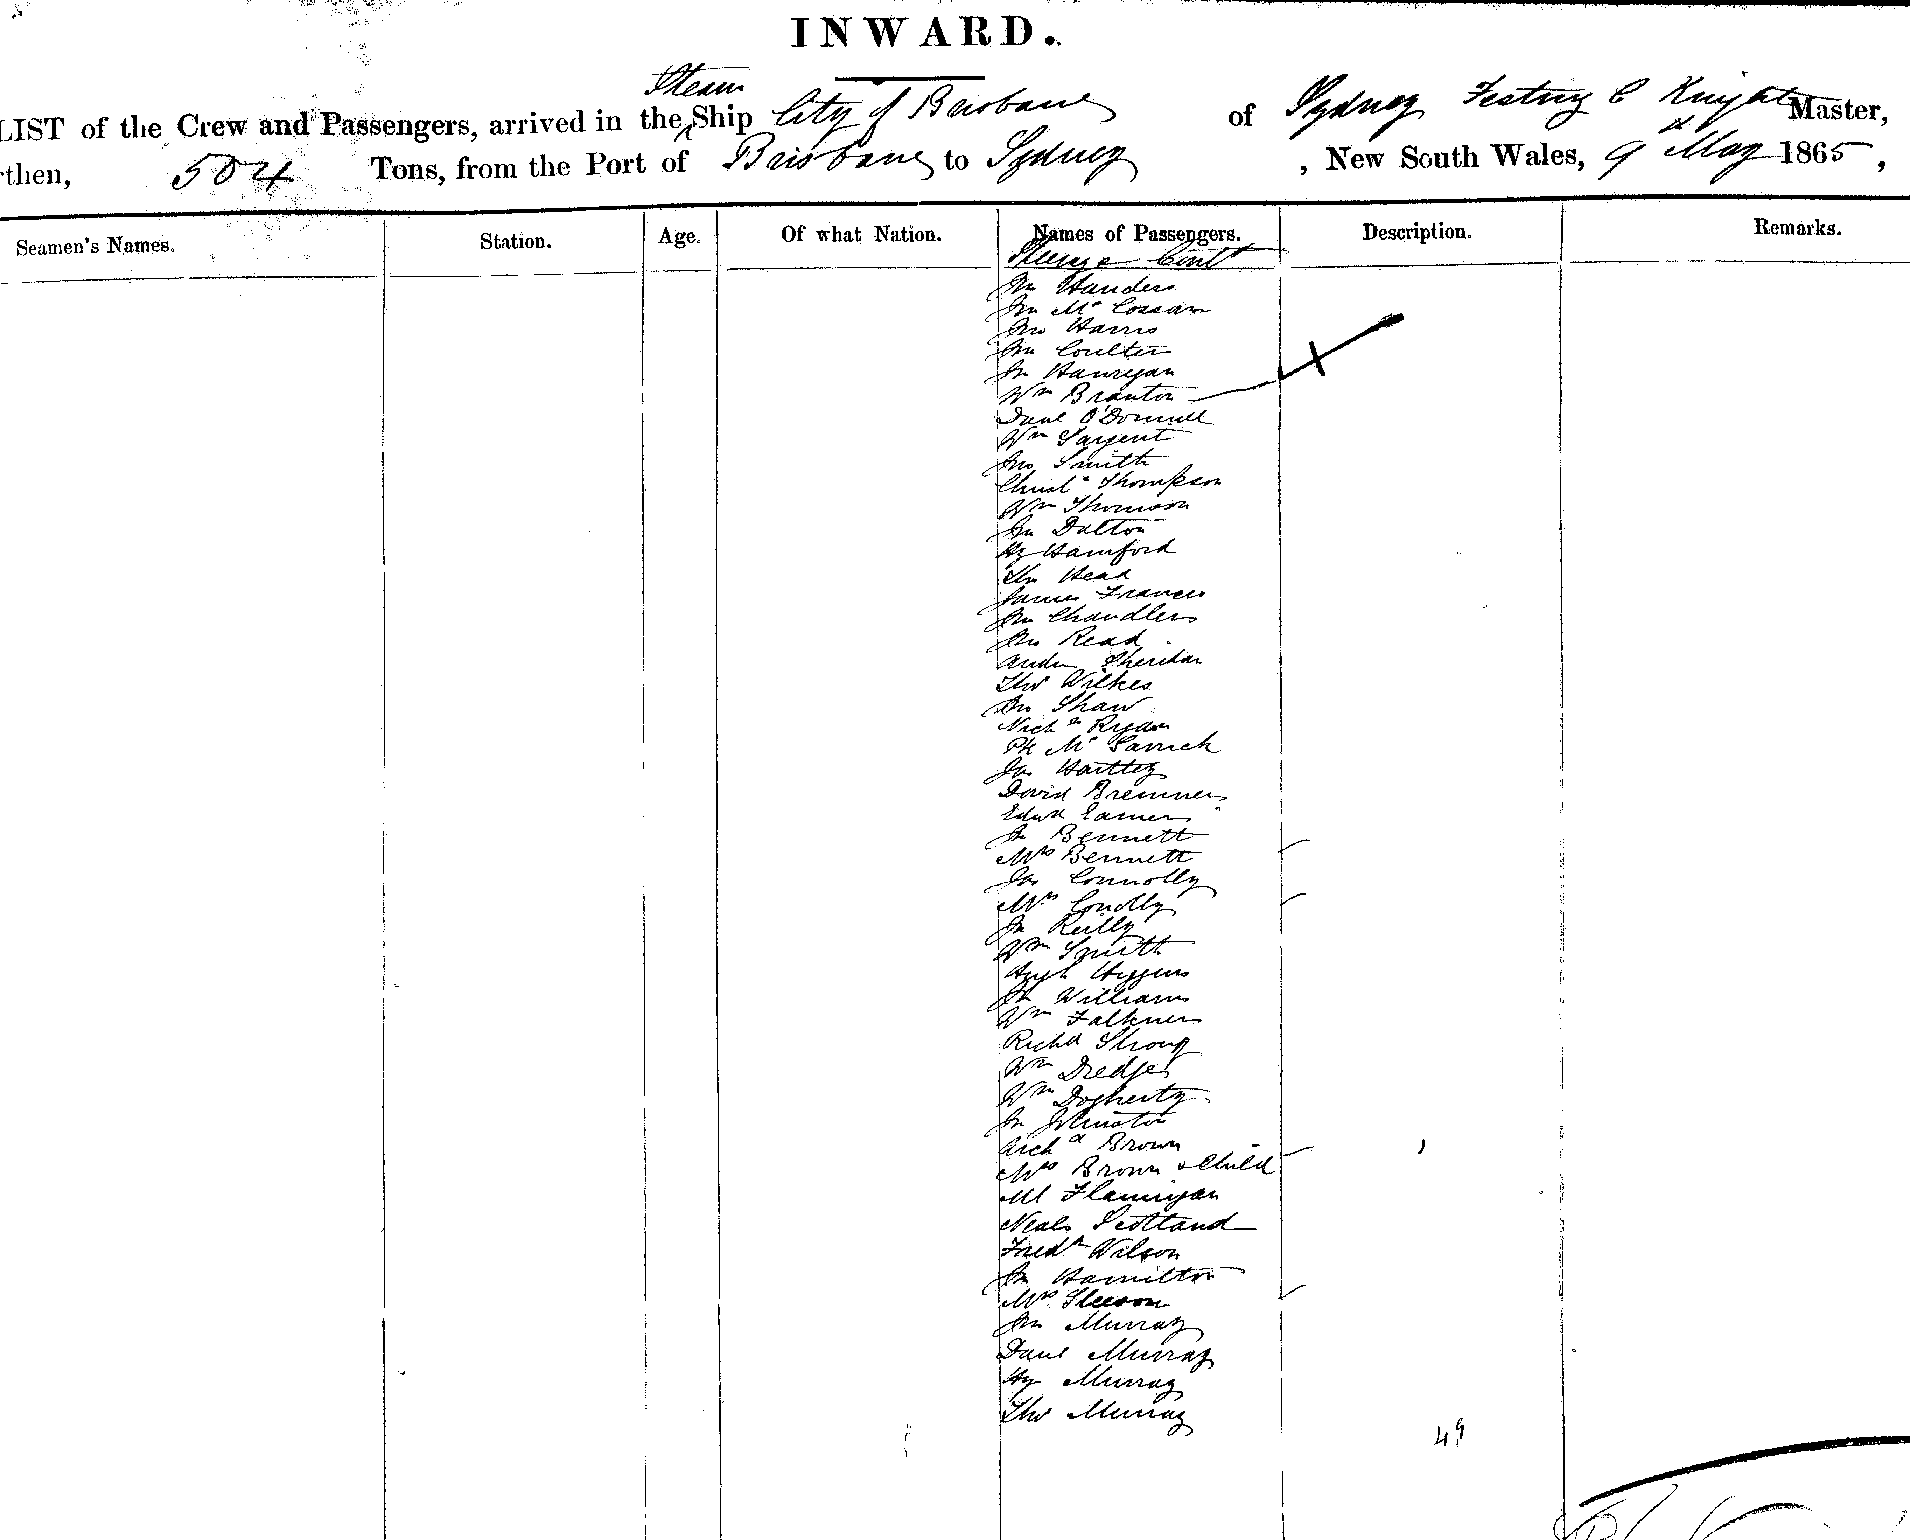 INWARD.
Steam
LIST of the Crew and Passengers, arrived in the Ship City of Brisbane of Sydney C Knight Master,
rthen, 504 Tons, from the Port of Brisbane to Sydney, New South Wales, 9th May 1865,
Seamen's Names. Station. Age. Of what Nation. Names of Passengers. Description. Remarks.
Steerage Cont
Jno
Jno McCossam
Jno Harris
Jno Coulter
Jn Hanregan
Wm Branton
Danl O'Donnell
Wm Sargent
Jno Smith
Thompson
Wm Thomson
Jno Dalton
Hy Hamford
Head
James Francis
Jno Chandlers
Jno Read
Andw Sheridan
Thos Wilkes
Jno Shaw
Nichs Ryan
Pk Mc
Jas Hartley
David Bremner
Edwd
Jn Bennett
Mrs Bennett
Jas Connolly
Mrs Conolly
Jn Reilly
Wm Smith
Hugh Higgins
Jn Williams
Wm Falkner
Richd Strong
Wm Dredge
Wm Dogherty
Jn Johnston
Archd Brown
Mrs Brown & Child
Ml Flannigan
Neals Scotland
Fredk Wilson
Jn Hamilton
Mrs Gleeson
Jno Murray
Danl Murray
Hy Murray
Thos Murray
49